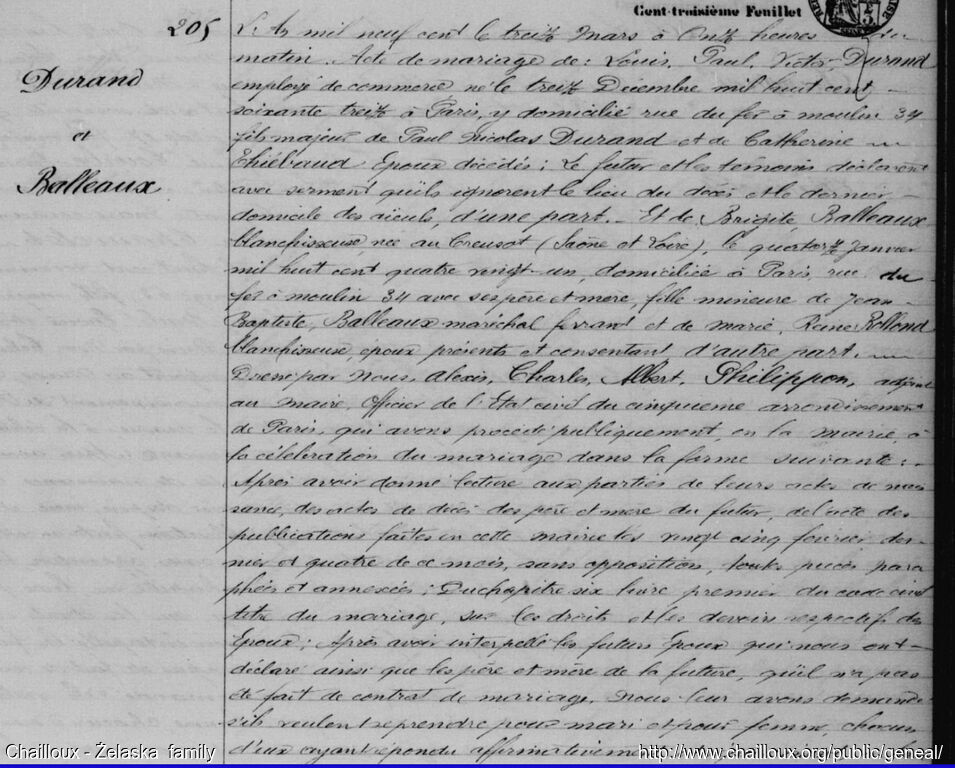 Cent-troisième Feuillet
205
Durand
et
Balleaux
L'An mil neuf cent le treize Mars à Onze heures du
matin Acte de mariage de : Louis, Paul, Victor Durand
employé de commerce né le treize Décembre mil huit cent
soixante treize à Paris, y domicilié rue du fer à moulin 34
fils majeur de Paul Nicolas Durand et de Catherine
Thiébaud Epoux décédés ; Le futur et les témoins déclarent
avec serment qu'ils ignorent le lieu du décès et le dernier
domicile des aïeuls, d'une part. Et de Brigite, Balleaux
blanchisseuse, née au Creusot (Saône et Loire), le quatorze Janvier
mil huit cent quatre vingt-un, domiciliée à Paris, rue du
fer à moulin 34 avec ses père et mère, fille mineure de Jean
Baptiste, Balleaux maréchal ferrant et de Marie, Reine Rollond
blanchisseuse époux présents et consentant d'autre part.
Dressé par Nous, Alexis, Charles, Albert, Philippon, adjoint
au maire, Officier de l'Etat civil du cinquième arrondissement
de Paris, qui avons procédé publiquement, en la mairie, à
la célébration du mariage dans la forme suivante :
Après avoir donné lecture aux parties de leurs actes de nais
sance, des actes de décès des père et mère du futur, de l'acte des
publications faites en cette mairie les vingt cinq février der
nier et quatre de ce mois, sans opposition, toutes pièces para
phées et annexées ; Du chapitre six livre premier du code civil
titre du mariage, sur les droits et les devoirs respectifs des
Epoux ; Après avoir interpellé les futurs Epoux qui nous ont
déclaré ainsi que les père et mère de la future, qu'il n'a pas
été fait de contrat de mariage, Nous leur avons demandé
s'ils veulent se prendre pour mari et pour femme, chacun
d'eux ayant répondu affirmativement
Chailloux - Żelaska family
http://www.chailloux.org/public/geneal/